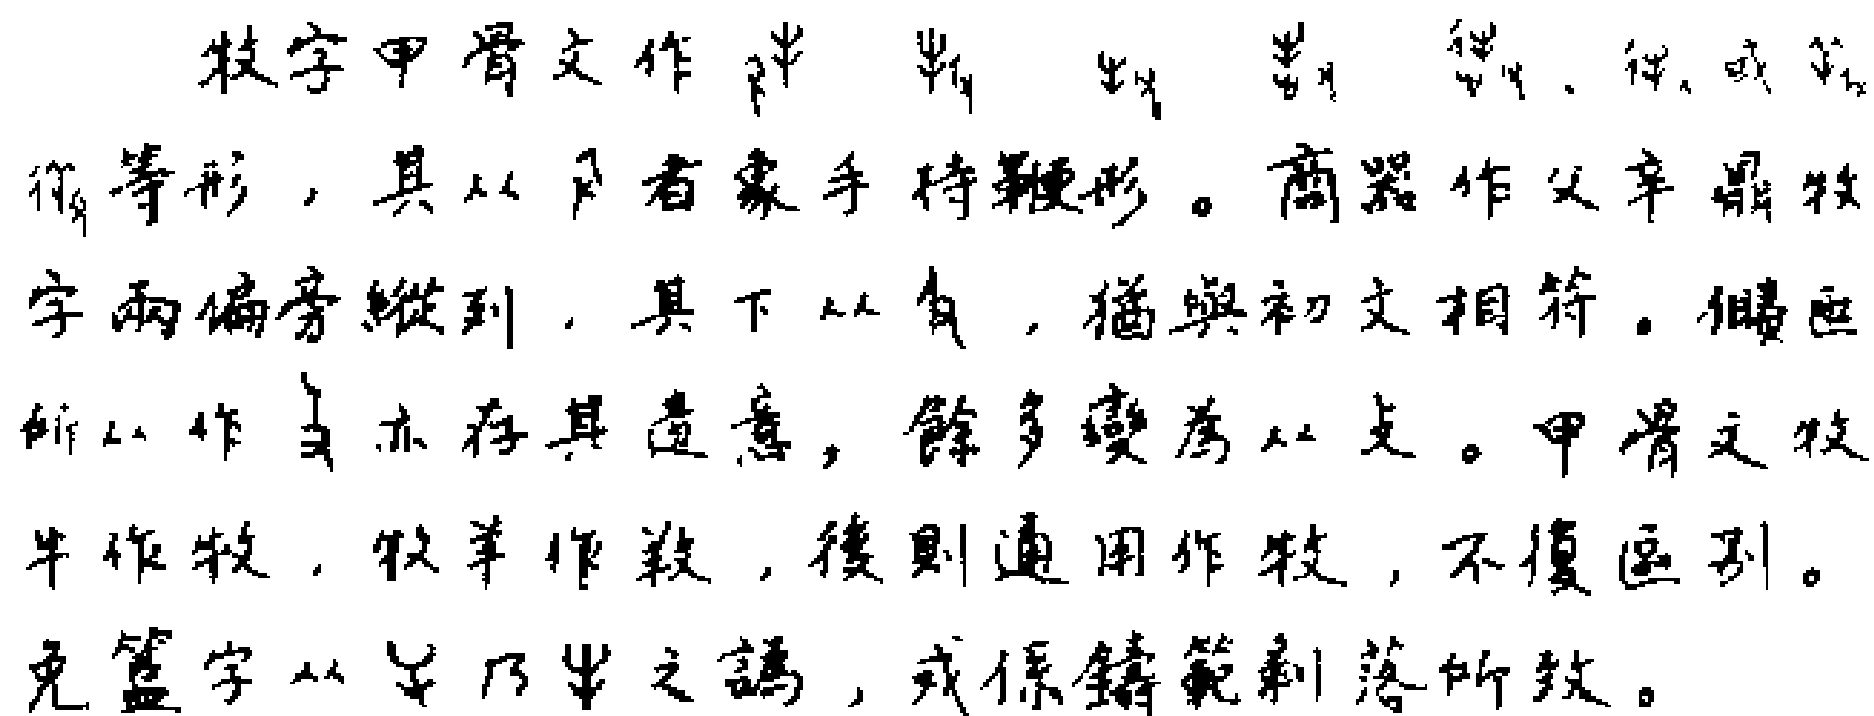 牧字甲骨文作
等形，其从者象手持鞭形。商器作父辛鼎牧
字兩偏旁縱列，其下从，猶與初文相符。匜
所从作亦存其遺意，餘多變為从攴。甲骨文牧
牛作牧，牧羊作𢼝，後則通用作牧，不復區別。
免簠字从乃之譌，或係鑄範剝落所致。